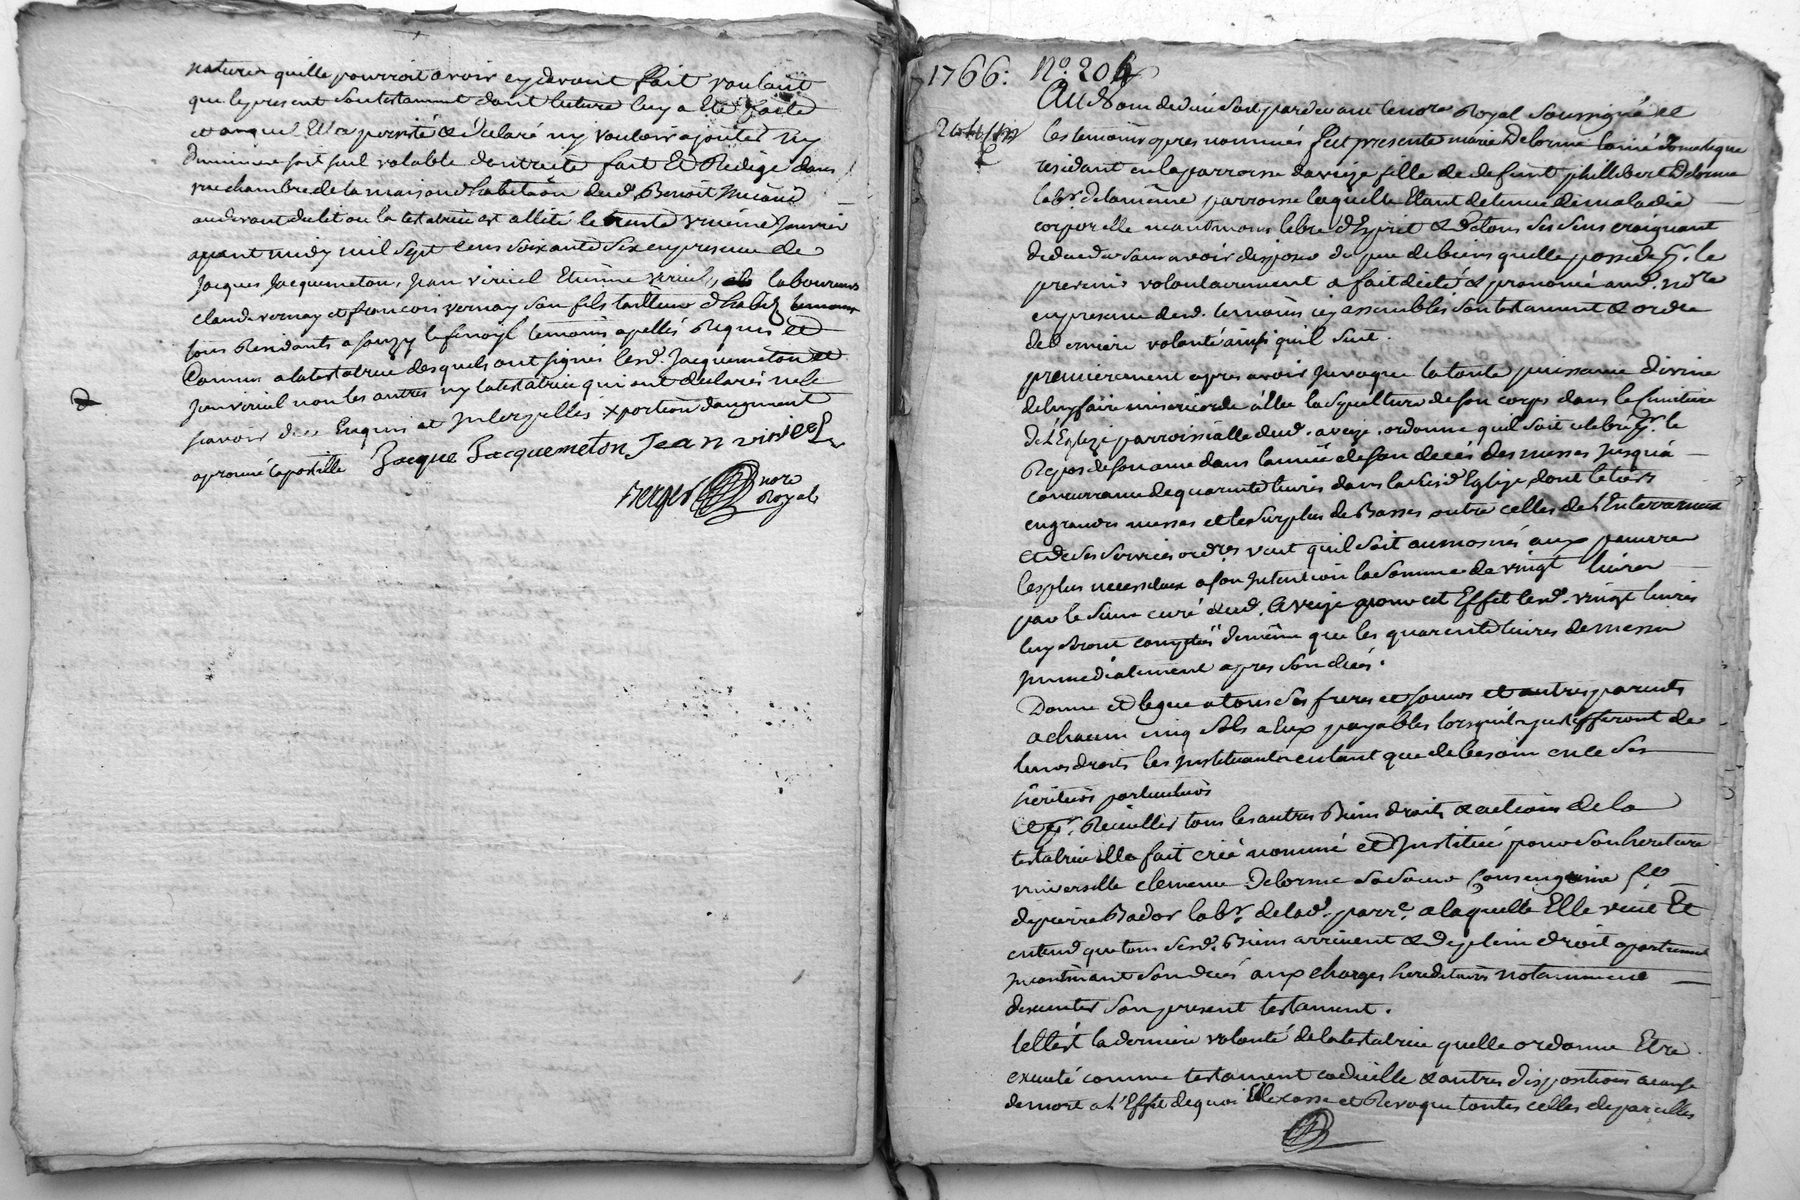 nature quelle pourroit avoir cy devant fait voulant
que le present son testament dont lecture luy a Eté faite
et auquel Elle a persisté & déclaré ny vouloir ajouter ny
diminuer soit seul valable dont acte fait Et Redigé dans
une chambre de la maison d'habitaon dud. Benoit
audevant du lit ou la testatrice est allité le trente unième Janvier
avant midy mil sept cens soixante six en presence de
Jacques Jacquemeton, Jean viricel Etienne viricel, laboureurs
Claude vernay et francois vernay son fils tailleur d'habits
tous Residants a souzy temoins apellés Requis Et
Connus a la testatrice desquels ont signés lesd. Jacquemeton et
Jean viricel non les autres ny la testatrice qui ont declarés ne le
scavoir de ce Enquis et Interpellés x portion daugment
aprouvé l'apostille Jacque Jacquemeton Jean viricel
Berger nore
Royal
1766: No. 204
Au Nom de dieu soit pardevant le nore Royal soussigné et
les temoins apres nommés fut presente marie Delorme lainé domestique
residant en la parroisse daveize fille de defunt phillibert Delorme
labr. de la même parroisse laquelle Etant detenue de maladie
corporelle neantmoins libre d'Esprit & de tous ses sens craignant
de deceder sans avoir disposé du peu de biens quelle possede Ql. le
previens volontairement a fait dicté & prononcé aud. nore
en presence desd. temoins icy assemblés son testament & ordre
de derniere volonté ainsi quil suit.
premierement apres avoir Invoqué la toute puissance divine
de luy faire misericorde a elle la sepulture de son corps dans le simitiere
de l'Eglize parroissialle dud. aveize, ordonne quil soit celebré pr. le
Repos de son ame dans l'année de son decés des messes Jusqu'à
concurrance de quarente livres dans lad. Eglize dont le tiers
en grandes messes et le surplus de Basses outre celles de l'Enterrement
et de ses services ordres veut quil soit aumosnés aux pauvres
les plus necessiteux a son Intention la somme de vingt livres
par le sieur curé dud. Aveize pour cet Effet lesd. vingt livres
luy seront comptés de même que les quarente livres de messes
Immediatement apres son decés.
Donne et legue a tous ses freres et soeurs et autres parents
a chacun cinq sols a Eux payables lorsquils Justifieront de
leurs droits les Instituants en tant que de besoin en ce ses
heritiers particuliers
Et pr. Recueillir tous les autres Biens droits & actions de la
testatrice Elle a fait créé nommé et Institué pour son heritiere
universelle clemence Delorme sa soeur Consanguine fe
de pierre Bador labr. de lad. parre. a laquelle Elle veut Et
entend que tous sesd. Biens arrivent & de plein droit apartienent
Incontinant son decés aux charges hereditaires notamment
dexecuter son present testament.
telle est la derniere volonté de la testatrice quelle ordonne Etre
executé comme testament codicille & autres dispositions a cause
de mort a l'Effet de quoi Elle casse et Revoque toutes celles de pareilles